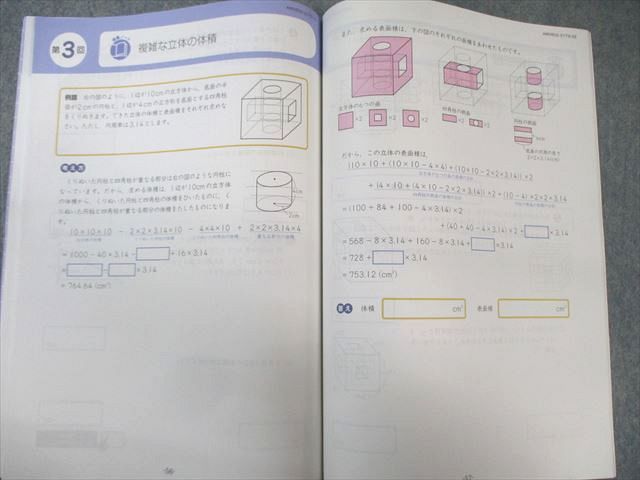 第3回
複雑な立体の体積
例題 右の図のように、1辺が10cmの立方体から、底面の半
径が2cmの円柱と、1辺が4cmの正方形を底面とする四角柱
をくりぬきます。できた立体の体積と表面積をそれぞれ求めな
さい。ただし、円周率は3.14とします。
考え方
くりぬいた円柱と四角柱が重なる部分は右の図のような円柱に
なっています。だから、求める体積は、1辺が10cmの立方体
の体積から、くりぬいた円柱と四角柱の体積をひいたものに、く
りぬいた円柱と四角柱が重なる部分の体積をたしたものになりま
す。
4cm
2cm
10×10×10 − 2×2×3.14×10 − 4×4×10 + 2×2×3.14×4
=1000−40×3.14− +16×3.14
= − ×3.14
=764.64(cm³)
-56-
また、求める表面積は、下の図のそれぞれの面積をあわせたものです。
立方体の6つの面
×2 ×2 ×2
四角柱の側面
×2 ×2
円柱の側面
だから、この立体の表面積は、
{10×10+(10×10−4×4)+(10×10−2×2×3.14)}×2
+{4×10+(4×10−2×2×3.14)}×2+(10−4)×2×2×3.14
=(100+84+100−4×3.14)×2
+(40+40−4×3.14)×2+ ×3.14
=568−8×3.14+160−8×3.14+ ×3.14
=728+ ×3.14
=753.12(cm²)
答え 体積 cm³ 表面積 cm²
-57-